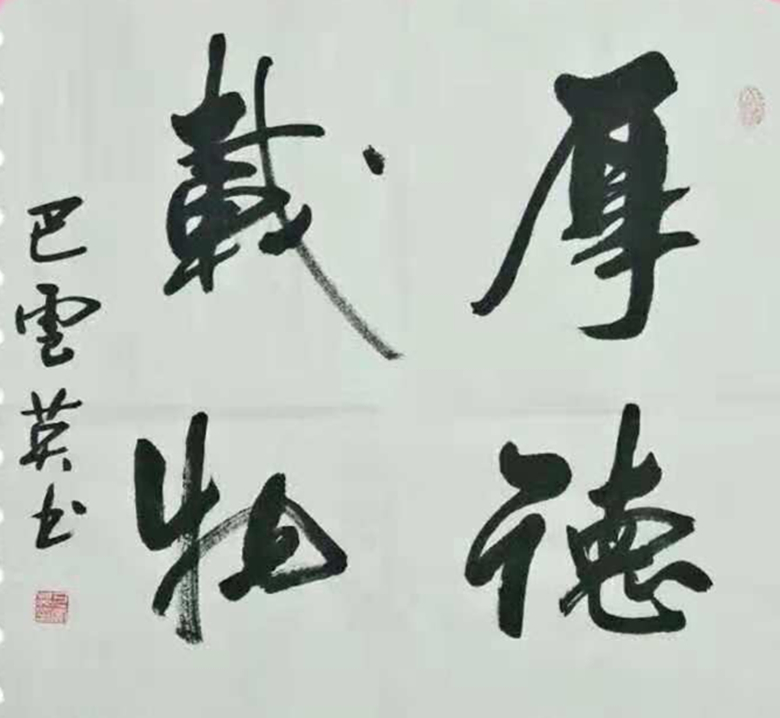 厚德
載物
巴雲英书